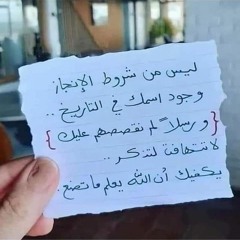 ليس من شروط الإنجاز
وجود اسمك في التاريخ ..
{ ورسلاً لم نقصصهم عليك }
لا تتهافت لتذكر ..
يكفيك أن الله يعلم ما تصنع .